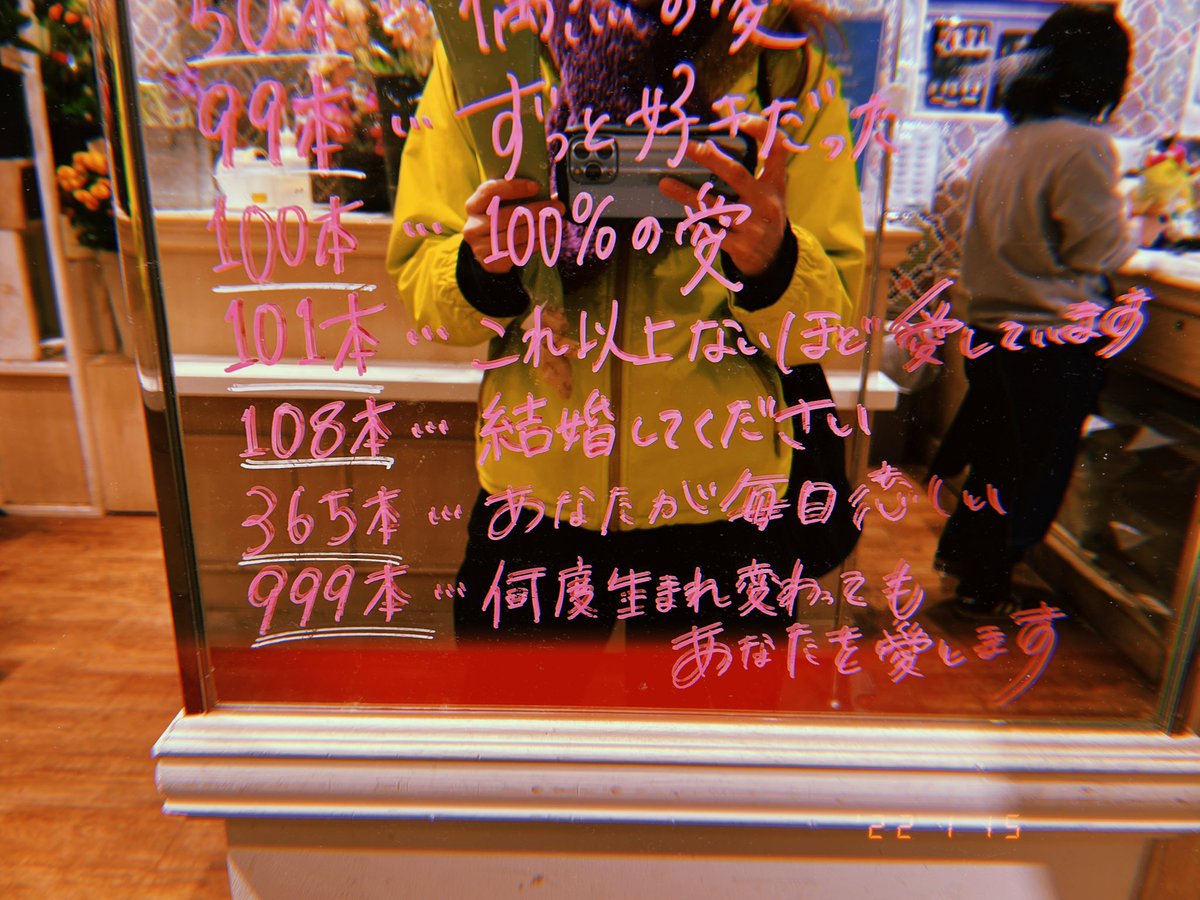 50本 … 偶然の愛
99本 … ずっと好きだった
100本 … 100%の愛
101本 … これ以上ないほど愛しています
108本 … 結婚してください
365本 … あなたが毎日恋しい
999本 … 何度生まれ変わっても
あなたを愛します
'22 1 15